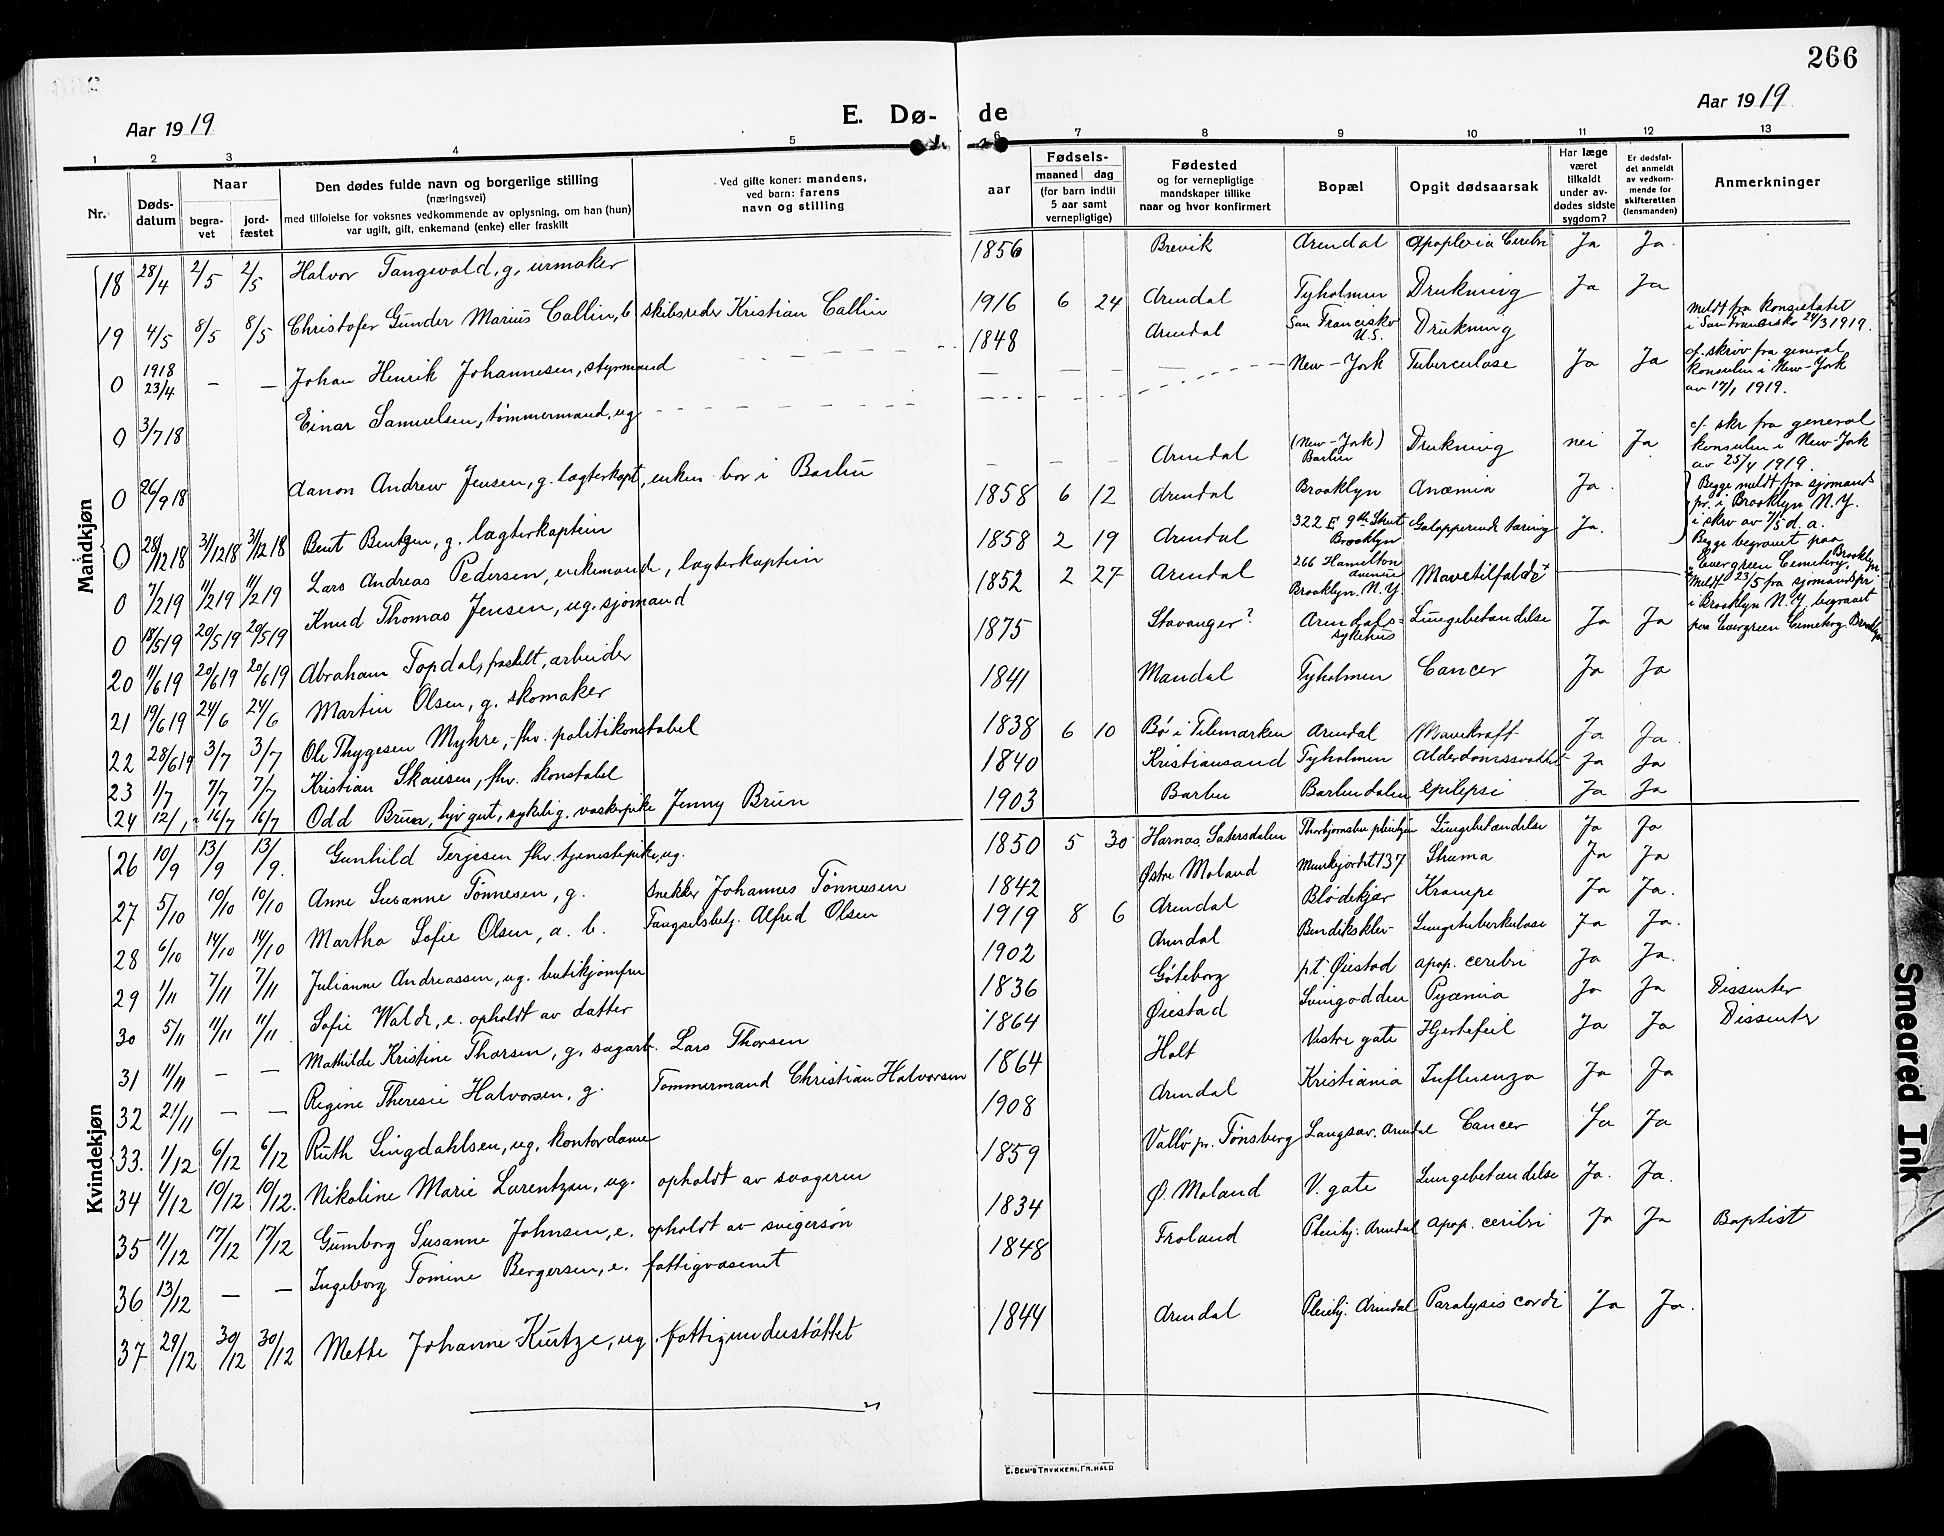 266
Aar 1919
E. Dø- de
Aar 1919
1 2 3 4 5 6 7 8 9 10 11 12 13
Nr.
Døds-
datum
Naar
begra-
vet
jord-
fæstet
Den dødes fulde navn og borgerlige stilling
(næringsvei)
med tilføielse for voksnes vedkommende av oplysning, om han (hun)
var ugift, gift, enkemand (enke) eller fraskilt
Ved gifte koner: mandens,
ved barn: farens
navn og stilling
aar
Fødsels-
maaned dag
(for barn indtil
5 aar samt
vernepligtige)
Fødested
og for vernepligtige
mandskaper tillike
naar og hvor konfirmert
Bopæl
Opgit dødsaarsak
Har læge
været
tilkaldt
under av-
dødes sidste
sygdom?
Er dødsfal-
det anmeldt
av vedkom-
mende for
skifteretten
(lensmanden)
Anmerkninger
Mandkjøn
18 28/4 2/5 2/5 Halvor Tangevald, g, urmaker 1856 Brevik Arendal Apoplexia Cerebri Ja Ja.
19 4/5 8/5 8/5 Christofer Gunder Marius Callin, b skibsreder Kristian Callin 1916 6 24 Arendal Tyholmen Drukning Ja Ja
0 1918 23/4 — — Johan Henrik Johannesen, styrmand 1848 Arendal San Francisko U.S. Drukning
Meldt fra konsulatet
i San Francisko 24/3 1919.
0 3/7 18 Einar Samuelsen, tømmermand, ug New-York Tuberculose Ja Ja
cf. skriv fra general
konsulen i New-York
av 17/1 1919.
0 26/9 18 Aanon Andrew Jensen, g. lægterkapt, enken bor i Barbu — — Arendal (New-York) Barbu Drukning nei Ja
cf. skr fra general
konsulen i New-York
av 25/4 1919.
0 28/12 18 31/12 18 31/12 18 Bent Bentzen, g. lægterkaptein 1858 6 12 Arendal Brooklyn Anæmia Ja.
Begge meldt fra sjømands
pr. i Brooklyn N.Y.
i skrv av 7/5 d. a.
Begge begravet paa
Evergreen Cemetery, Brooklyn
0 7/2 19 11/2 19 11/2 19 Lars Andreas Pedersen, enkemand, lægterkaptein 1858 2 19 Arendal 322 E 9th Street Brooklyn Galopperende tæring Ja.
0 18/5 19 20/5 19 20/5 19 Knud Thomas Jensen, ug. sjømand 1852 2 27 Arendal 266 Hamilton Avenue Brooklyn N.Y
Meldt 23/5 fra sjømandspr
i Brooklyn N.Y. begravet
paa Evergreen Cemetery Brooklyn
20 11/6 19 20/6 19 20/6 19 Abraham Topdal, fraskilt, arbeider 1875 Stavanger? Arendals sykehus Lungebetændelse Ja Ja
21 19/6 19 24/6 24/6 Martin Olsen, g. skomaker 1841 Mandal Tyholmen Cancer Ja Ja
22 28/6 19 3/7 3/7 Ole Thygesen Myhre, fhv. politikonstabel 1838 6 10 Bø i Telemarken Arendal Mavekræft Ja Ja.
23 1/7 7/7 7/7 Kristian Skausen, fhv. konstabel 1840 Kristiansand Tyholmen Alderdomssvakhet Ja Ja
24 16/7 16/7 Odd Brun, lyv gut, sykelig, vaskepike Jenny Brun 1903 Barbu Barbudalen epilepsi Ja Ja
Kvindekjøn
26 10/9 13/9 13/9. Gunhild Terjesen fhv. tjenestepike, ug. 1850 5 30 Lungebetændelse Ja Ja
27 5/10 10/10 10/10 Anne Susanne Tønnesen, g. Snekker Johannes Tønnesen 1842 Østre Moland Munkjordet 137 Struma Ja Ja
28 6/10 14/10 14/10 Martha Sofie Olsen, a. b. Fængselsbetj. Alfred Olsen 1919 8 6 Arendal Blødekjær Krampe Ja Ja.
29 1/11 7/11 7/11 Julianne Andreassen, ug. butikjomfru 1902 Arendal Bendiksklev Lungetuberkulose Ja Ja.
30 5/11 11/11 11/11 Sofie Walde, e. opholdt av datter 1836 Göteborg p.t. Øiestad apop. cerebri Ja Ja.
31 11/11 — — Mathilde Kristine Thorsen, g, sagarb. Lars Thorsen 1864 Øiestad Svingodden Pyæmia Ja Ja Dissenter
32 21/11 — — Regine Theresie Halvorsen, g. Tømmermand Christian Halvorsen 1864 Holt Vestre gate Hjertefeil Ja Ja Dissenter
33. 1/12 6/12 6/12 Ruth Lingdahlsen, ug, kontordame 1908 Arendal Kristiania Influenza Ja Ja
34 4/12 10/12 10/12. Nikoline Marie Lorentzen, ug. opholdt av svogeren 1859 Vallø pr. Tønsberg Langsæ. Arendal Cancer Ja Ja
35 11/12 17/12 17/12 Gumborg Susanne Johnsen, e. opholdt av svigersøn 1834 Ø. Moland V. gate Lungebetændelse Ja. Ja.
36 13/12 — — Ingeborg Tomine Bergersen, e. fattigvæsenet 1848 Froland Pleiehj. Arendal apop. cerebri Ja Ja Baptist
37 29/12 30/12 30/12 Mette Johanne Kurtze, ug. fattigunderstøttet 1844 Arendal Pleiehj. Arendal Paralysis cordi Ja Ja.
E. BEM'S TRYKKERI, FR. HALD
Smeared Ink